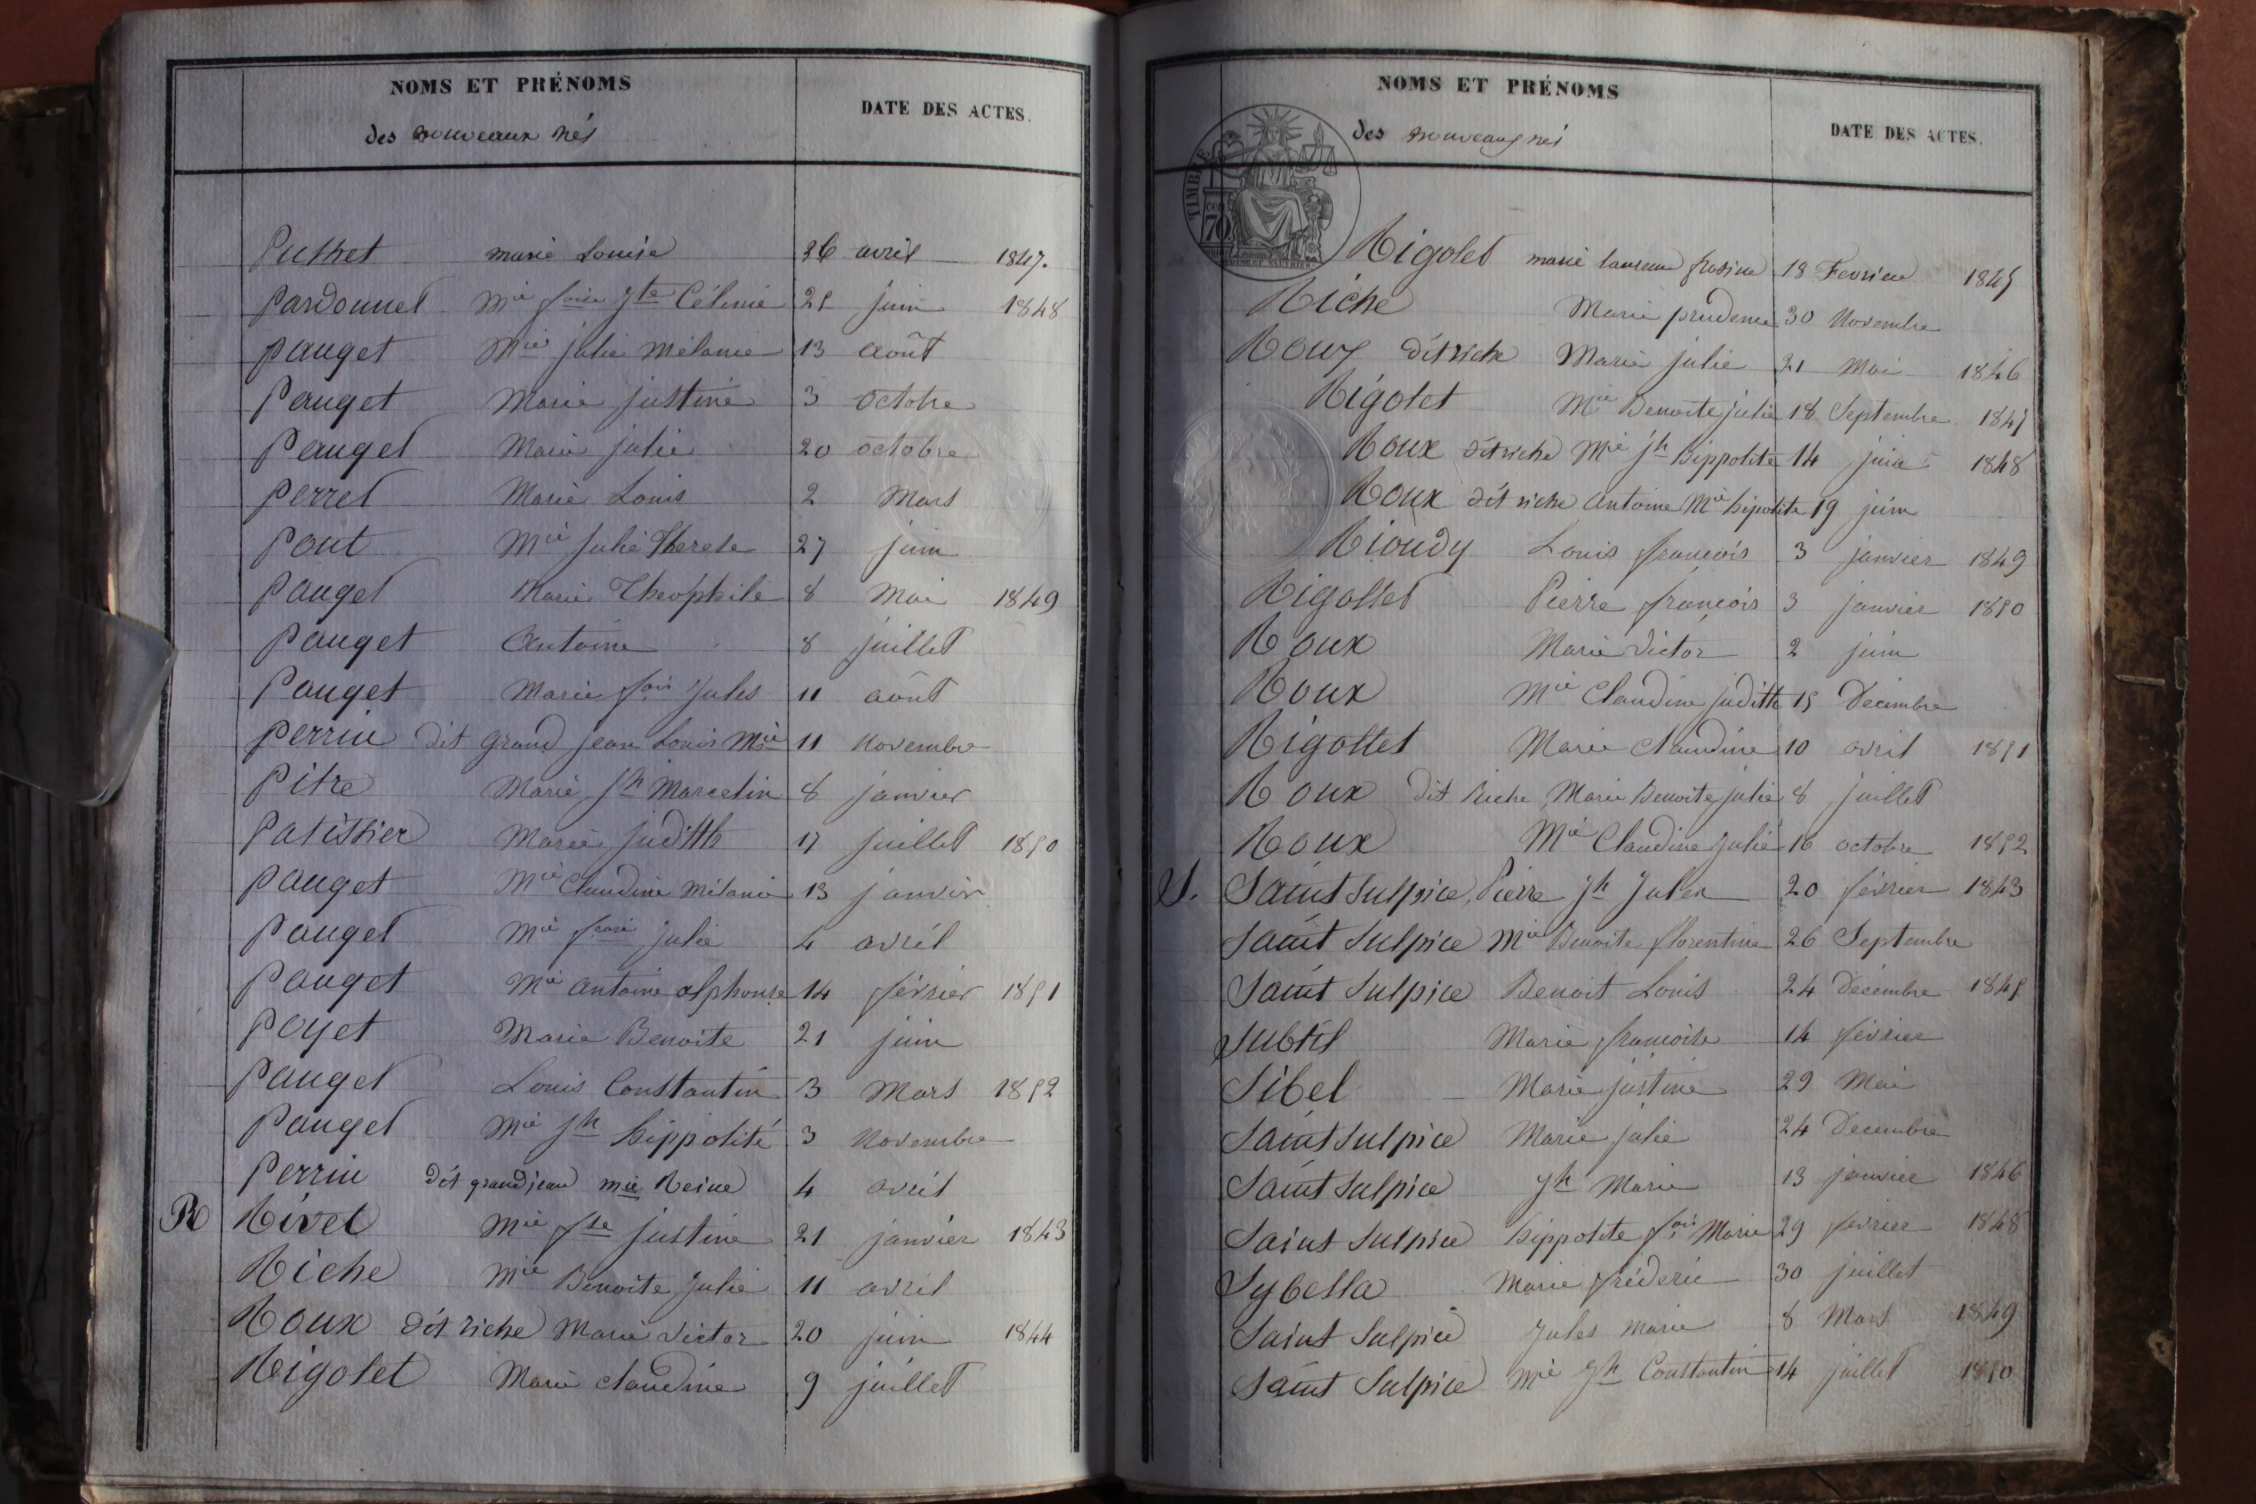 NOMS ET PRÉNOMS
des nouveaux nés
DATE DES ACTES.
Puthet marie Louise 26 avril 1847.
Pardonnet Mie foise Jte Célinie 25 juin 1848
pauget Mie julie Mélanie 13 août
Pauget Marie justine 3 octobre
Pauget Marie julie 20 octobre
perret Marie Louis 2 Mars
pont Mie Julie Therese 27 juin
pauget Marie Théophile 8 Mai 1849
Pauget Antoine 8 juillet
Pauget Marie fois Jules 11 août
perrin dit grand jean Louis Mie 11 Novembre
Pitre Marie Jh Marcelin 8 janvier
Patissier Marie judith 17 juillet 1850
Pauget Mie Claudine Mélanie 13 janvier
Pauget Mie foise julie 4 avril
Pauget Mie antoine alphonse 14 février 1851
Poyet Marie Benoite 21 juin
Pauget Louis Constantin 3 Mars 1852
Pauget Mie Jh hippolité 3 Novembre
Perrin dit grandjean mie Reine 4 avril
R Rivet Mie fse justine 21 janvier 1843
Riche Mie Benoite Julie 11 avril
Roux dit riche Marie Victor 20 juin 1844
Rigolet Marie claudine 9 juillet
NOMS ET PRÉNOMS
des nouveaux nés
DATE DES ACTES.
TIMBRE
70
Rigolet marie 18 Fevrier 1845
Riche Marie prudence 30 Novembre
Roux dit riche Marie julie 21 Mai 1846
Rigolet Mie Benoite julie 18 Septembre 1847
Roux dit riche Mie jh hippolite 14 juin 1848
Roux dit riche Antoine Mie hipolite 19 juin
Rioudy Louis françois 3 janvier 1849
Rigollet Pierre françois 3 janvier 1850
Roux Marie Victor 2 juin
Roux Mie Claudine judith 15 Décembre
Rigollet Marie Claudine 10 avril 1851
Roux dit Riche Marie Benoite julie 8 juillet
Roux Mie Claudine julie 16 octobre 1852
S. Saint Sulpice Pierre Jh Julien 20 février 1843
Saint Sulpice Mie Benoite florentine 26 Septembre
Saint Sulpice Benoit Louis 24 Décembre 1845
Subtil Marie francoise 14 février
Sibel Marie justine 29 Mai
Saint Sulpice Marie julie 24 Decembre
Saint Sulpice Jh Marie 13 janvier 1846
Saint Sulpice hippolite fois Marie 29 fevrier 1848
Sybella Marie fréderic 30 juillet
Saint Sulpice Jules Marie 8 Mars 1849
Saint Sulpice Mie Jh Constantin 14 juillet 1850